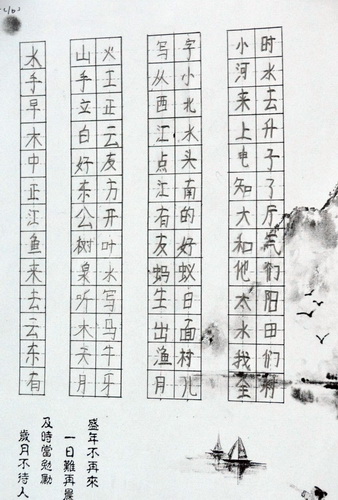 水 山火 写字 小时
手 手工 从小 河水
早 立正 西北 来去
木 白云 江水 上升
中 好友 点头 电子
正 东方 江南 知了
江 公开 有的 大厅
鱼 树叶 友好 和气
来 泉水 蚂蚁 他们
去 听写 生日 太阳
云 木马 出面 水田
东 天牛 渔村 我们
有 月牙 月儿 全村
盛年不再來
一日難再晨
及時當勉勵
歲月不待人